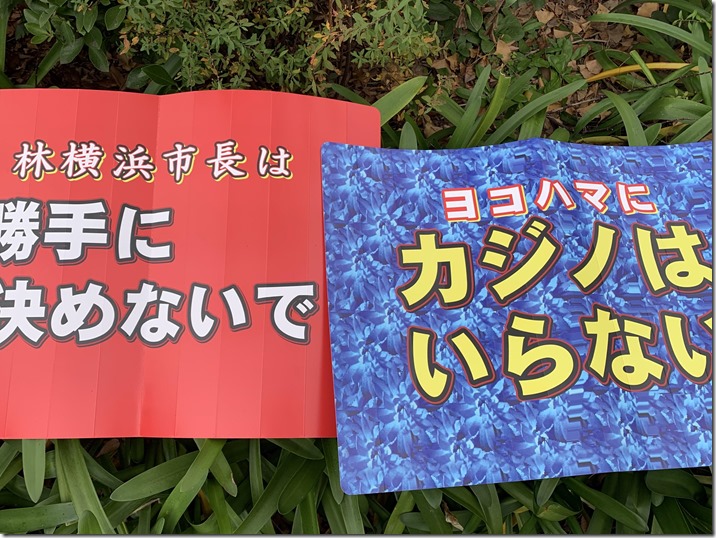 林横浜市長は
勝手に
決めないで
ヨコハマに
カジノは
いらない